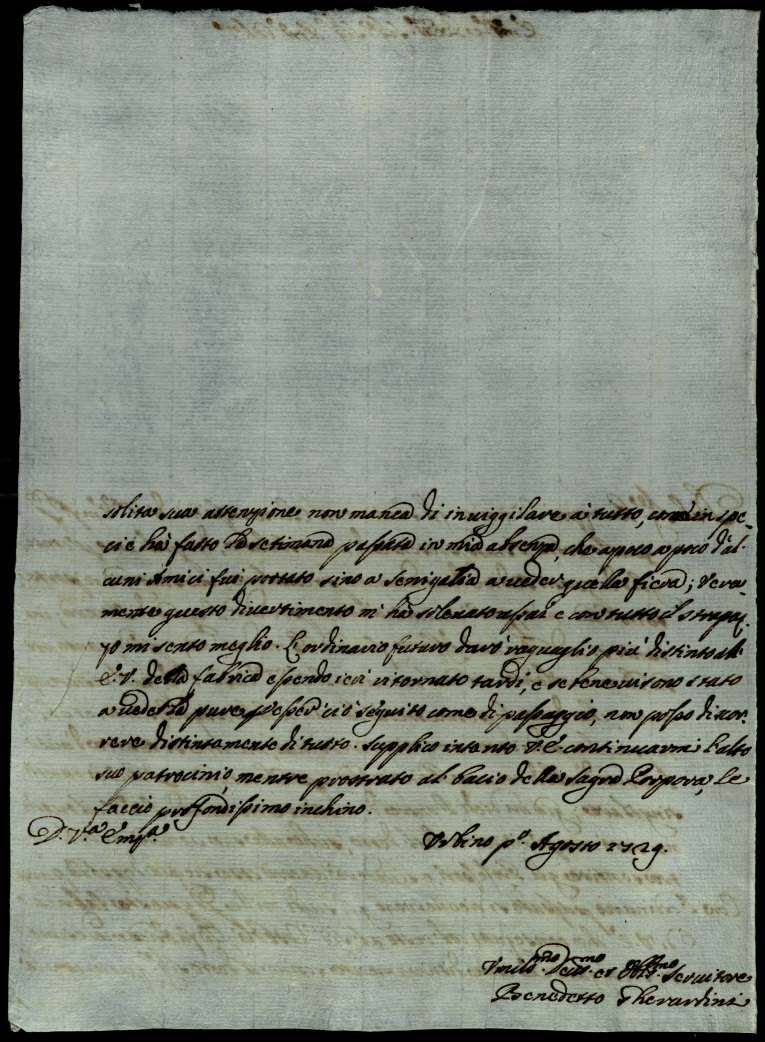 solita sua attenzione non manca di inviggilare à tutto, come in spe-
cie hà fatto la setimana passata in mia absenza, che apoco apoco d'al-
cuni Amici fui portato sino a Senigalia a veder quella fiera; Vera-
mente questo divertimento m'hà solevato assai e con tutto il strapaz-
zo mi sento meglio. L'ordinario futuro darò raguaglio più distinto all'
E.V. della fabrica essendo ieri ritornato tardi, e sebene vi sono stato
a vederla pure per esser ciò seguito come di passaggio, non posso discor-
rere distintamente di tutto. Supplico intanto V.E. continuarmi l'alto
suo patrocinio, mentre prostrato al bacio della Sagra Porpora, le
faccio profondissimo inchino.
D. V.ª Em.ª
Urbino p.º Agosto 1729.
Umiliss.mo Dev.mo et Obb.mo Servitore
Benedetto Gherardini